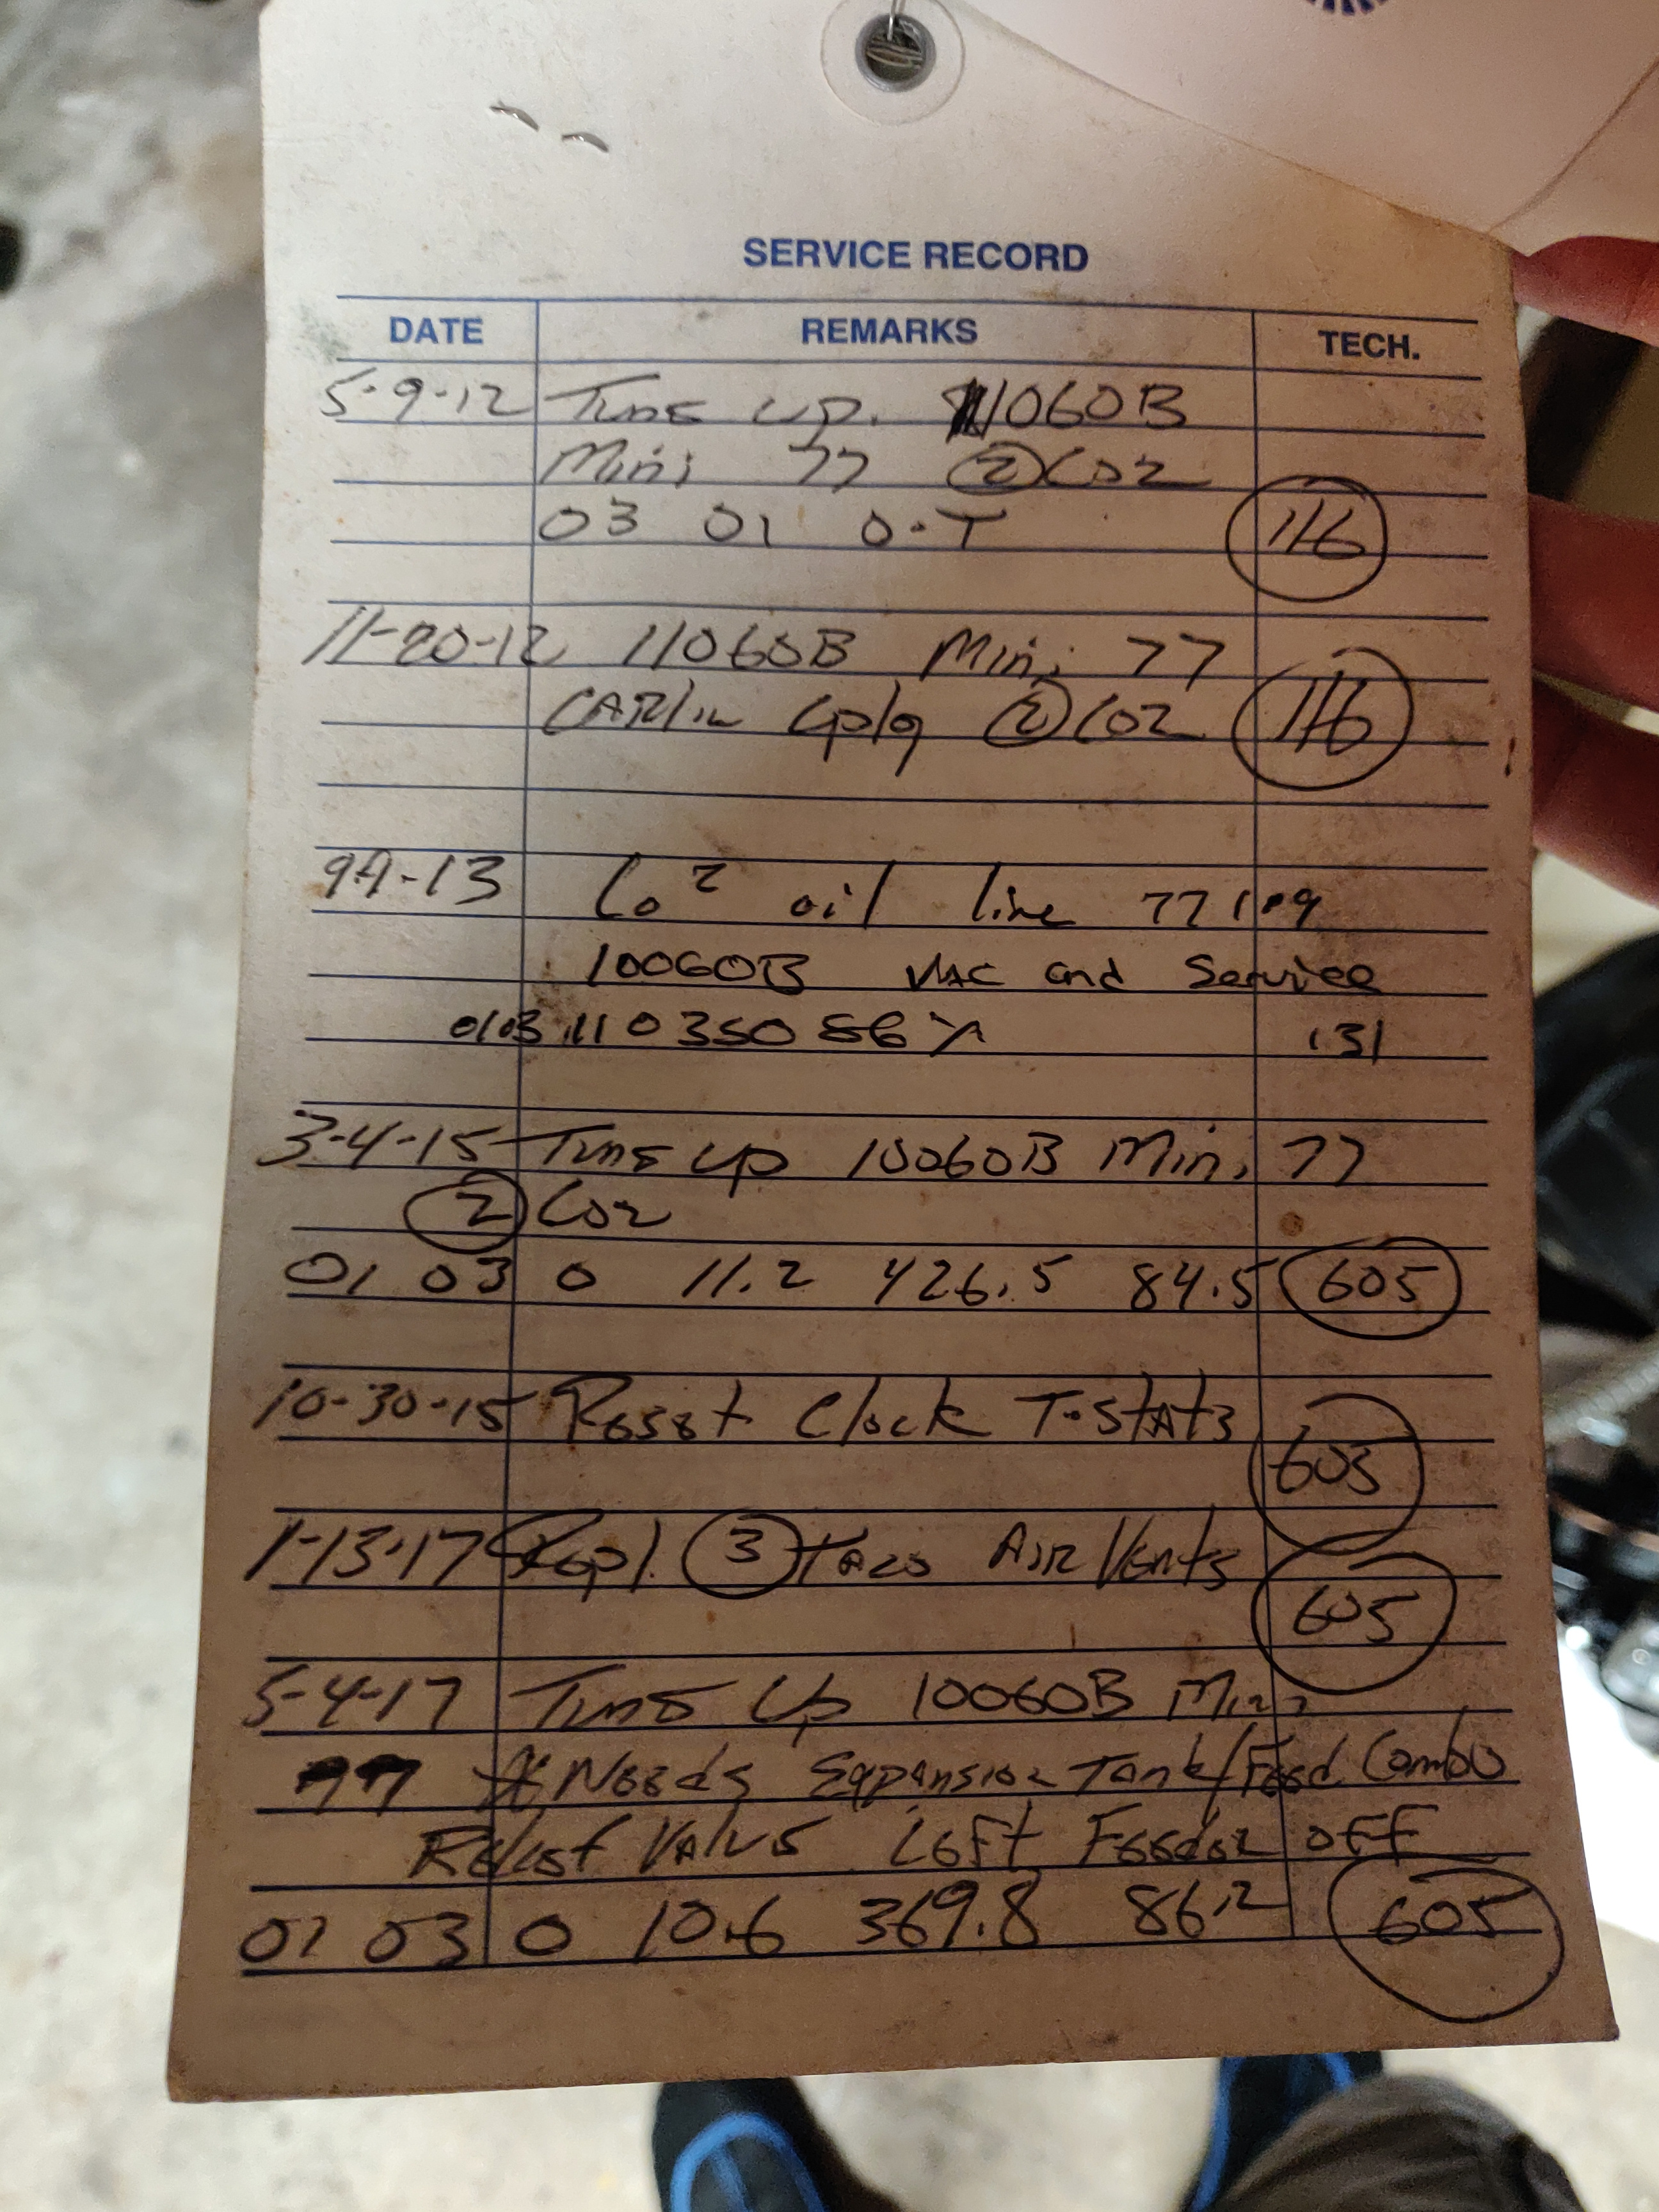 SERVICE RECORD
DATE REMARKS TECH.
5-9-12 Tune up. 11060B
Mini 77 2 CO2
03 01 0-T 116
11-20-12 11060B Mini 77
CARlin Cplg 2 CO2 116
9-9-13 Co2 oil line 77 109
10060B VAC and Service
01 03 11 0 350 86% 131
3-4-15 Tune up 10060B Mini 77
2 CO2
01 03 0 11.2 426.5 84.5 605
10-30-15 Reset Clock T-stats
605
1-13-17 Repl. 3 TACO AIR Vents
605
5-4-17 Tune Up 10060B Mini
77 Needs Expansion Tank/Feed Combo
Relief Valve Left Feeder off
01 03 0 10.6 369.8 86.2 605